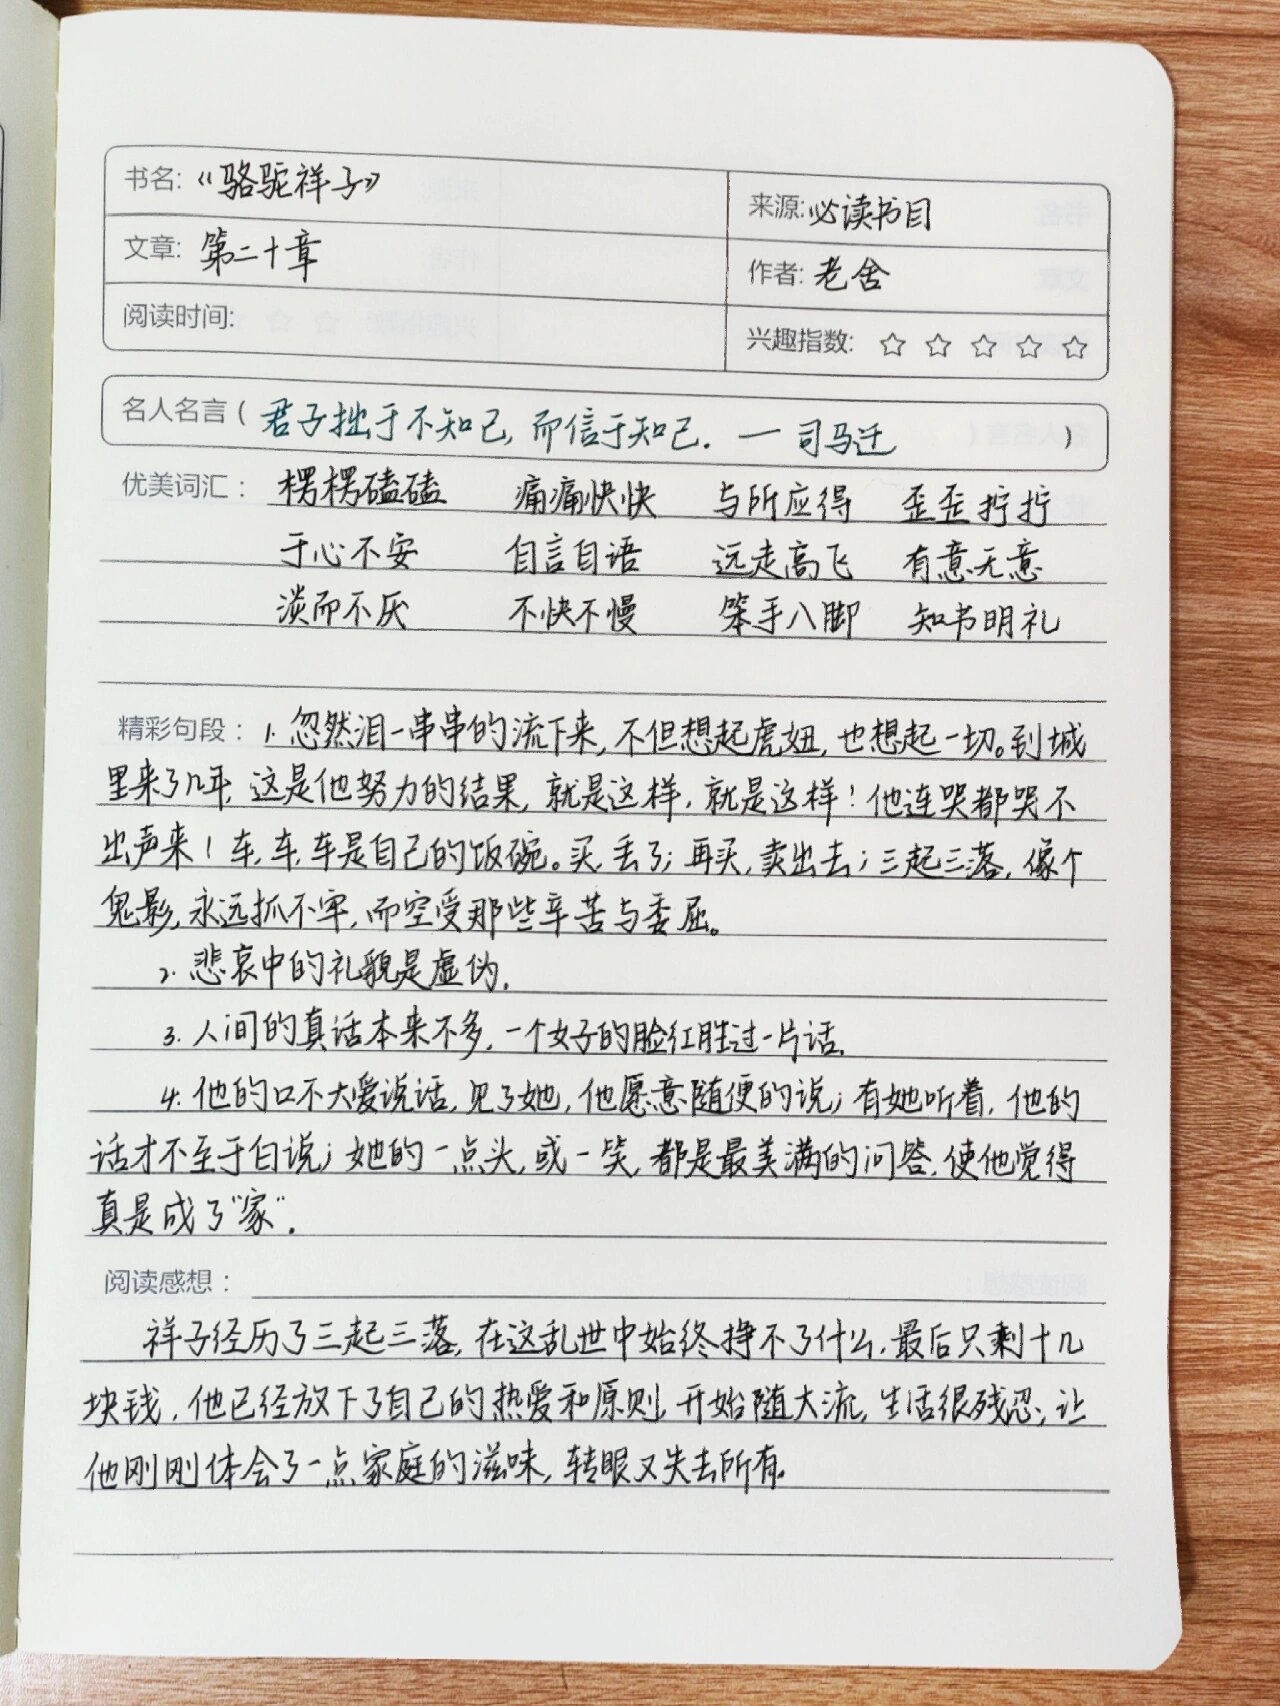 书名: 《骆驼祥子》
来源: 必读书目
文章: 第二十章
作者: 老舍
阅读时间:
兴趣指数: ☆ ☆ ☆ ☆ ☆
名人名言( 君子拙于不知己, 而信于知己. — 司马迁 )
优美词汇: 楞楞磕磕 痛痛快快 与所应得 歪歪拧拧
于心不安 自言自语 远走高飞 有意无意
淡而不厌 不快不慢 笨手八脚 知书明礼
精彩句段: 1. 忽然泪一串串的流下来, 不但想起虎妞, 也想起一切。到城
里来了几年, 这是他努力的结果, 就是这样, 就是这样! 他连哭都哭不
出声来! 车, 车, 车是自己的饭碗。买, 丢了; 再买, 卖出去; 三起三落, 像个
鬼影, 永远抓不牢, 而空受那些辛苦与委屈。
2. 悲哀中的礼貌是虚伪.
3. 人间的真话本来不多, 一个女子的脸红胜过一片话.
4. 他的口不大爱说话, 见了她, 他愿意随便的说; 有她听着, 他的
话才不至于白说; 她的一点头, 或一笑, 都是最美满的问答, 使他觉得
真是成了"家".
阅读感想:
祥子经历了三起三落, 在这乱世中始终挣不了什么, 最后只剩十几
块钱, 他已经放下了自己的热爱和原则, 开始随大流, 生活很残忍, 让
他刚刚体会了一点家庭的滋味, 转眼又失去所有.